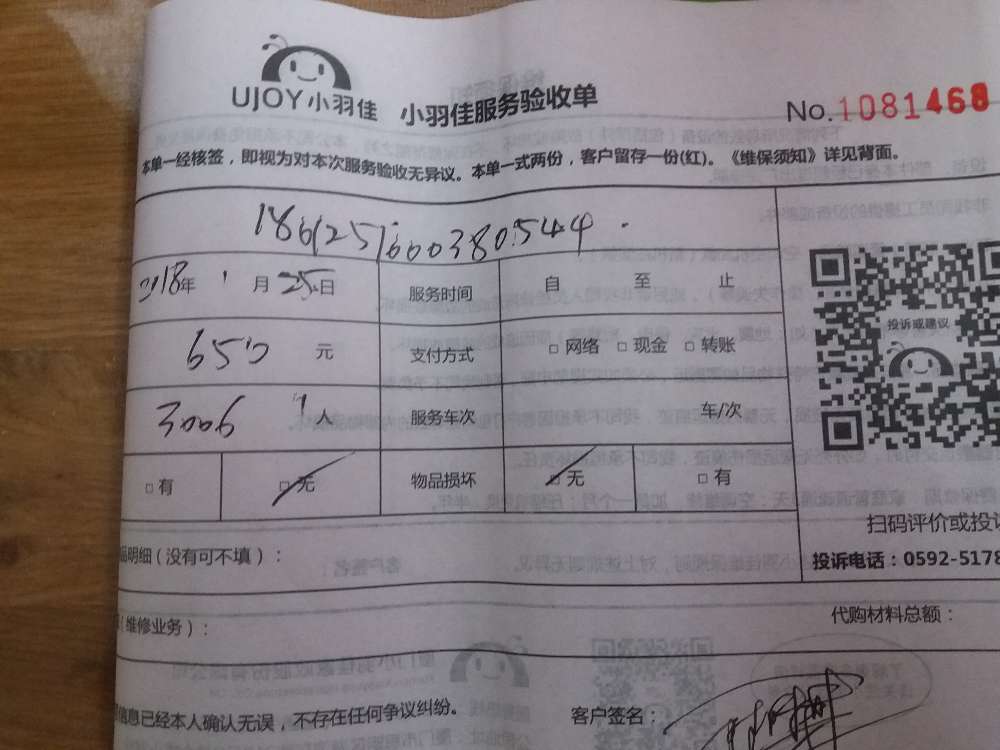 UJOY小羽佳 小羽佳服务验收单 No.1081468
本单一经核签，即视为对本次服务验收无异议。本单一式两份，客户留存一份(红)。《维保须知》详见背面。
2018年 1月25日 服务时间 自 至 止
650 元 支付方式 □网络 □现金 □转账
投诉或建议
3006 1人 服务车次 车/次
□有 □无 物品损坏 □无 □有
扫码评价或投
明细(没有可不填)：
投诉电话：0592-5178
(维修业务)：
代购材料总额：
信息已经本人确认无误，不存在任何争议纠纷。
客户签名：